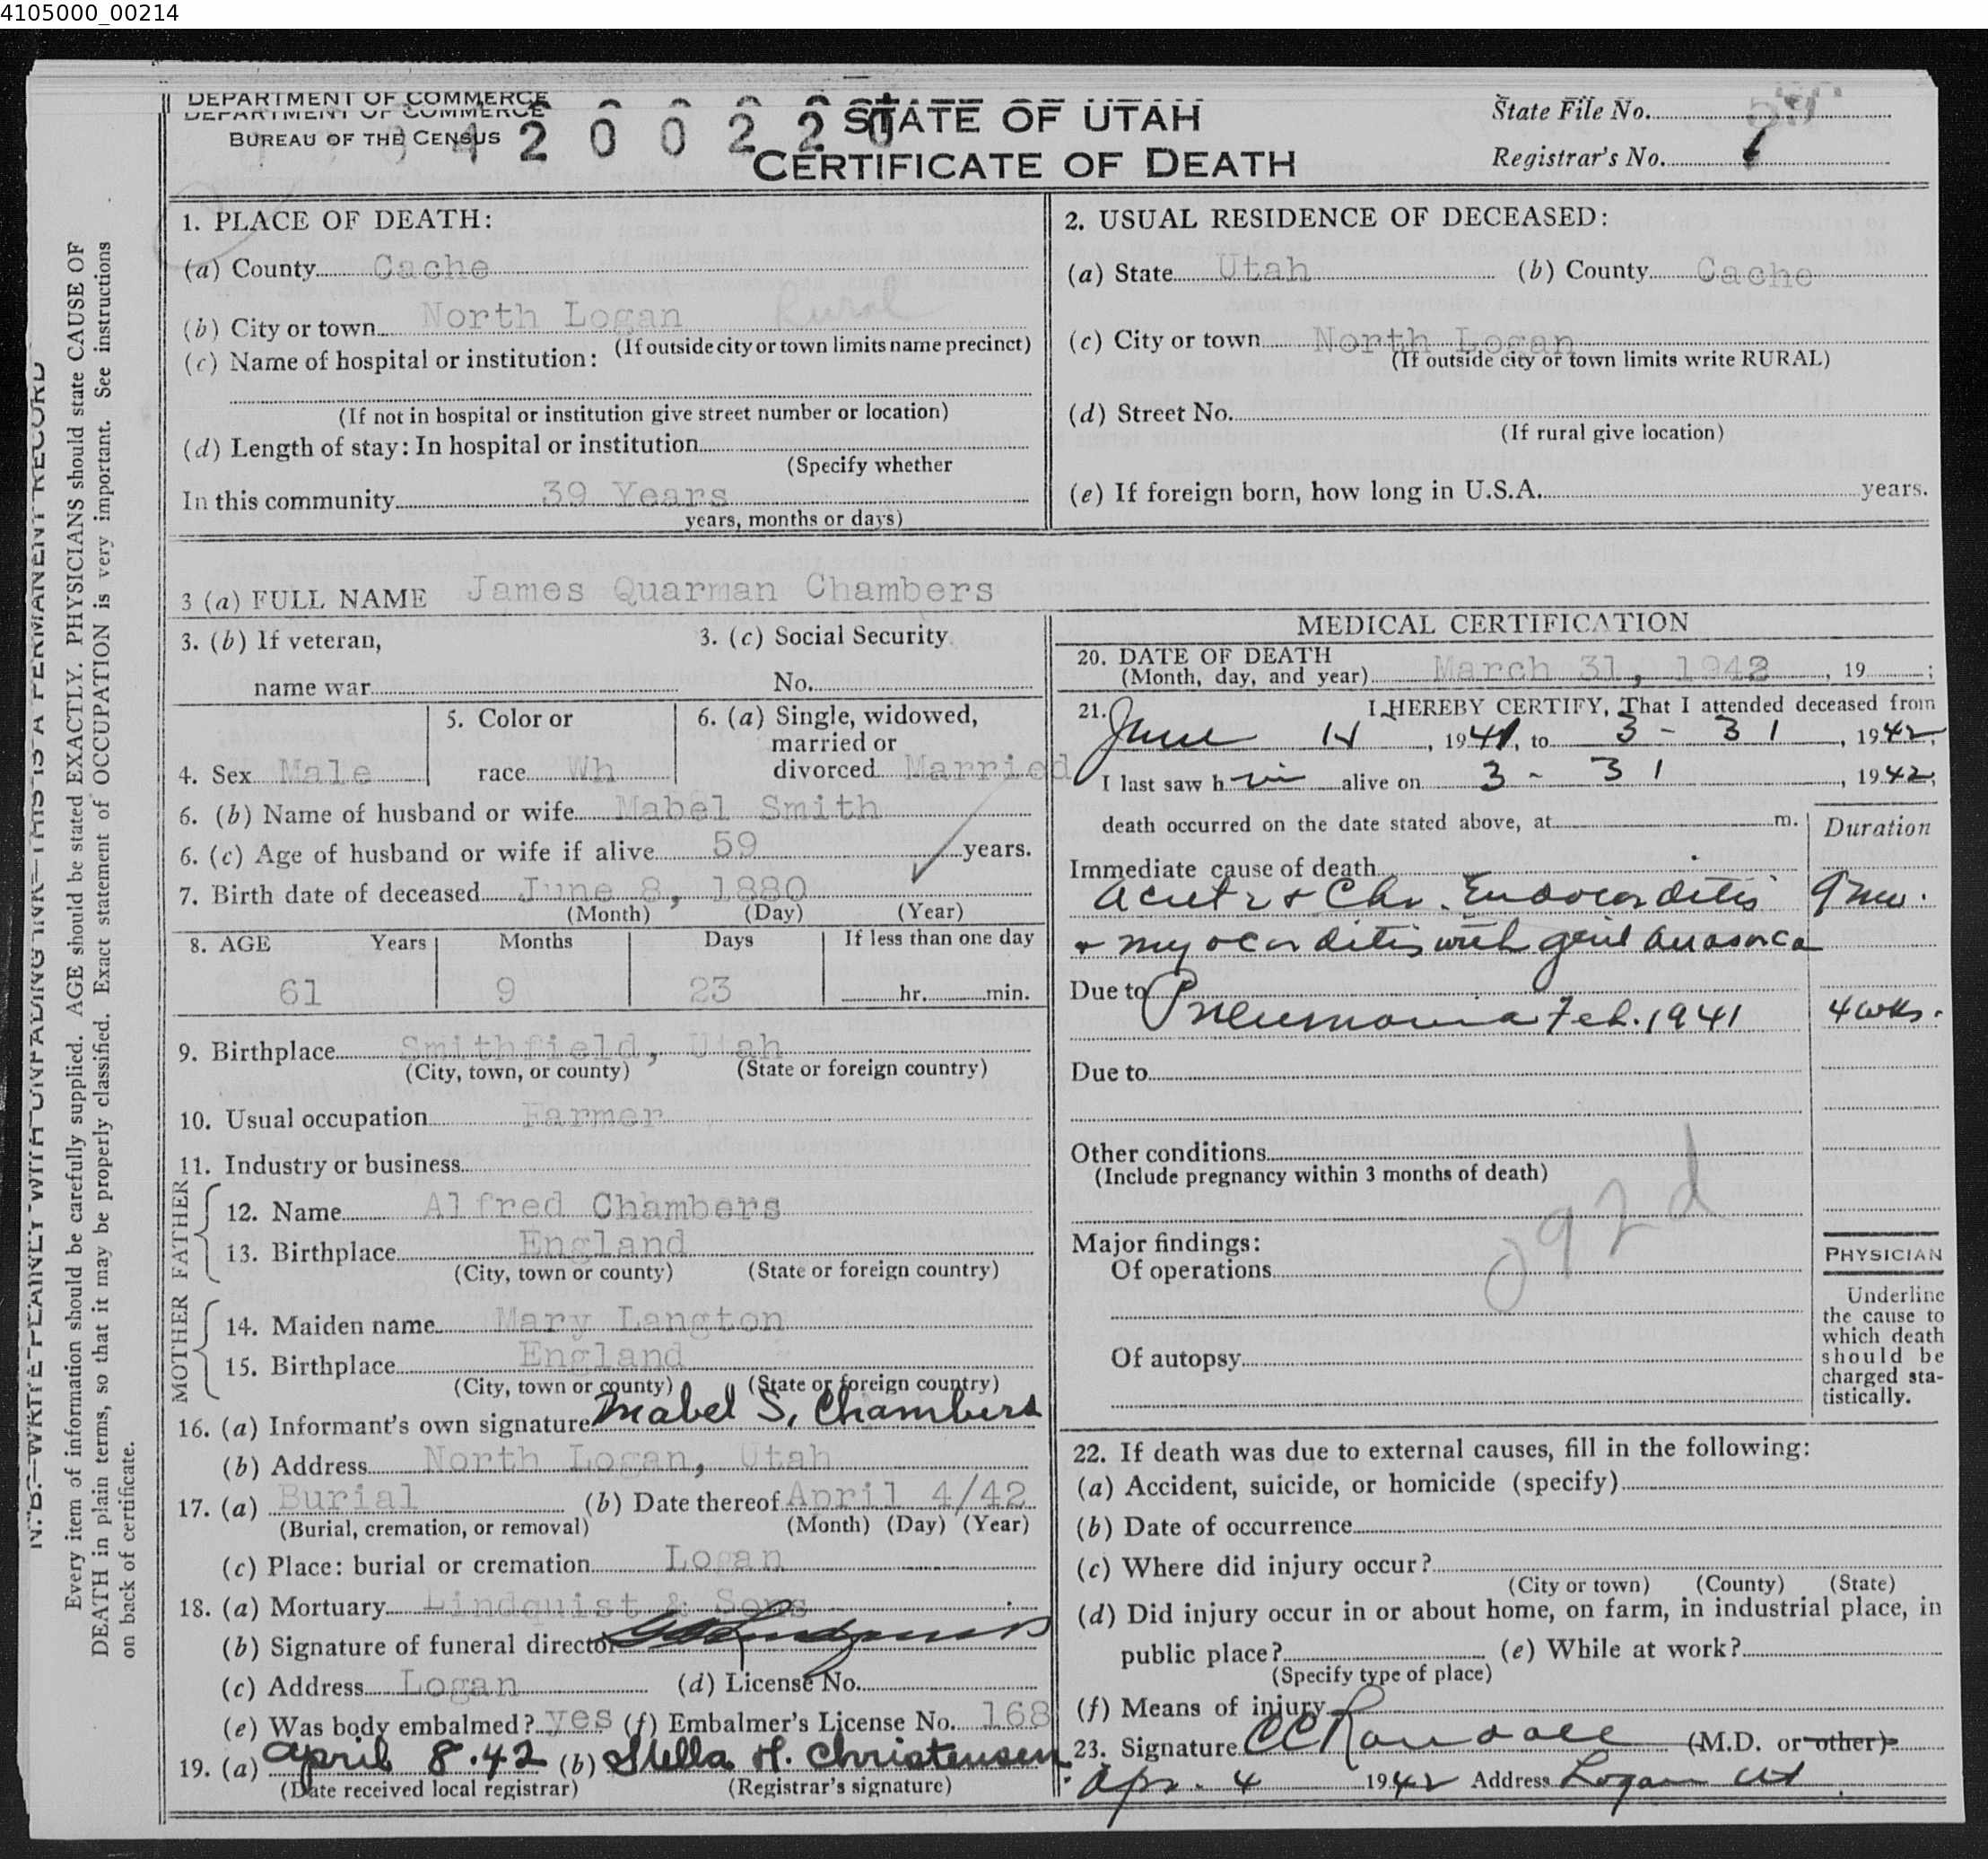 4105000_00214
DEPARTMENT OF COMMERCE
DEPARTMENT OF COMMERCE
BUREAU OF THE CENSUS
4200220
STATE OF UTAH
CERTIFICATE OF DEATH
State File No.
Registrar's No.
N. B.—WRITE PLAINLY WITH UNFADING INK—THIS IS A PERMANENT RECORD
Every item of information should be carefully supplied. AGE should be stated EXACTLY. PHYSICIANS should state CAUSE OF
DEATH in plain terms, so that it may be properly classified. Exact statement of OCCUPATION is very important. See instructions
on back of certificate.
1. PLACE OF DEATH:
(a) County Cache
(b) City or town North Logan Rural
(If outside city or town limits name precinct)
(c) Name of hospital or institution:
(If not in hospital or institution give street number or location)
(d) Length of stay: In hospital or institution
(Specify whether
In this community 39 Years
years, months or days)
2. USUAL RESIDENCE OF DECEASED:
(a) State Utah (b) County Cache
(c) City or town North Logan
(If outside city or town limits write RURAL)
(d) Street No.
(If rural give location)
(e) If foreign born, how long in U.S.A. years.
3 (a) FULL NAME James Quarman Chambers
3. (b) If veteran,
name war
3. (c) Social Security
No.
4. Sex Male
5. Color or
race Wh
6. (a) Single, widowed,
married or
divorced Married
6. (b) Name of husband or wife Mabel Smith
6. (c) Age of husband or wife if alive 59 years.
7. Birth date of deceased June 8, 1880
(Month) (Day) (Year)
8. AGE Years Months Days If less than one day
61 9 23 hr. min.
9. Birthplace Smithfield, Utah
(City, town, or county) (State or foreign country)
10. Usual occupation Farmer
11. Industry or business
FATHER
12. Name Alfred Chambers
13. Birthplace England
(City, town or county) (State or foreign country)
MOTHER
14. Maiden name Mary Langton
15. Birthplace England
(City, town or county) (State or foreign country)
16. (a) Informant's own signature Mabel S. Chambers
(b) Address North Logan, Utah
17. (a) Burial (b) Date thereof April 4/42
(Burial, cremation, or removal) (Month) (Day) (Year)
(c) Place: burial or cremation Logan
18. (a) Mortuary Lindquist & Sons
(b) Signature of funeral director
(c) Address Logan (d) License No.
(e) Was body embalmed? yes (f) Embalmer's License No. 168
19. (a) April 8. 42 (b) Stella H. Christensen
(Date received local registrar) (Registrar's signature)
MEDICAL CERTIFICATION
20. DATE OF DEATH
(Month, day, and year) March 31, 1942, 19 ;
21. I HEREBY CERTIFY, That I attended deceased from
June 14, 1941, to 3 - 31, 1942;
I last saw him alive on 3 - 31, 1942;
death occurred on the date stated above, at m.
Duration
Immediate cause of death
Acute & Chr. Endocarditis 9 mo.
& myocarditis with genl anasarca
Due to Pneumonia Feb. 1941 4 wks.
Due to
Other conditions
(Include pregnancy within 3 months of death)
92d
Major findings:
Of operations
Of autopsy
PHYSICIAN
Underline
the cause to
which death
should be
charged sta-
tistically.
22. If death was due to external causes, fill in the following:
(a) Accident, suicide, or homicide (specify)
(b) Date of occurrence
(c) Where did injury occur?
(City or town) (County) (State)
(d) Did injury occur in or about home, on farm, in industrial place, in
public place? (e) While at work?
(Specify type of place)
(f) Means of injury
23. Signature CC Randall (M.D. or other)
Apr. 4 1942 Address Logan Ut